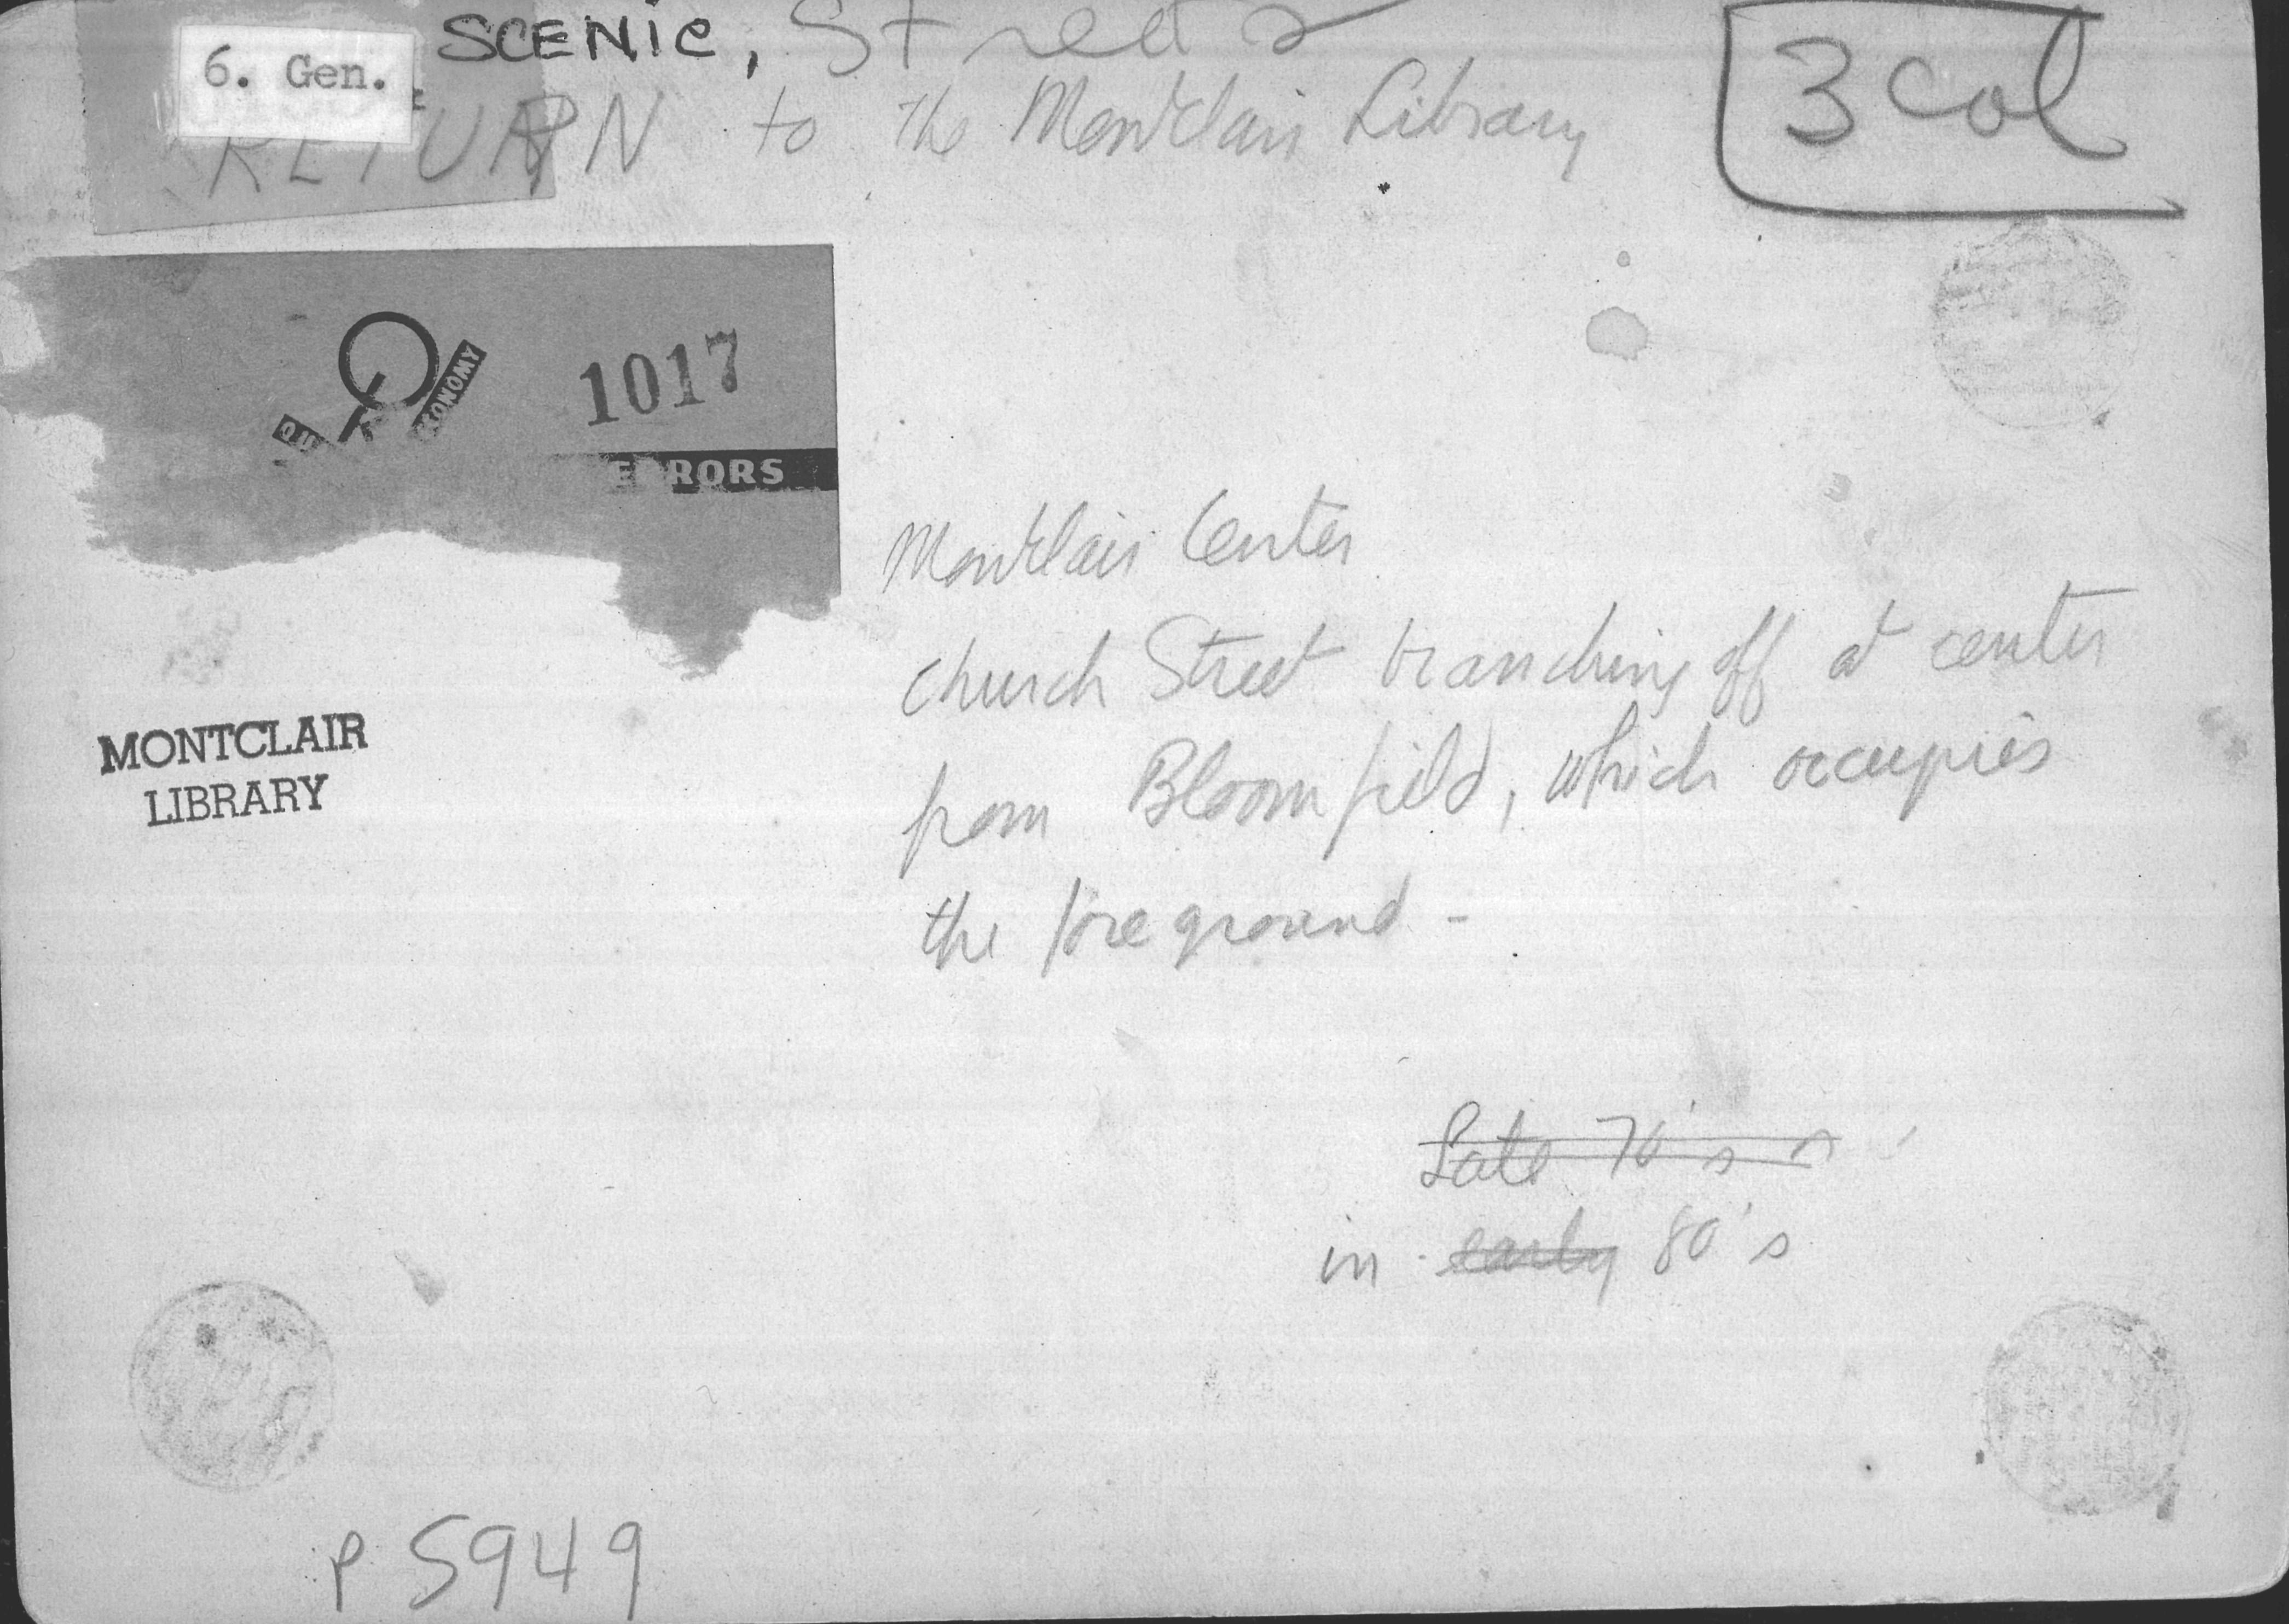 SCENIC, Streets
6. Gen.
RETURN to the Montclair Library
3 col
1017
ERRORS
Montclair Center
church Street branching off at center
from Bloomfield, which occupies
the foreground -
MONTCLAIR
LIBRARY
Late 70's
in early 80's
P 5949